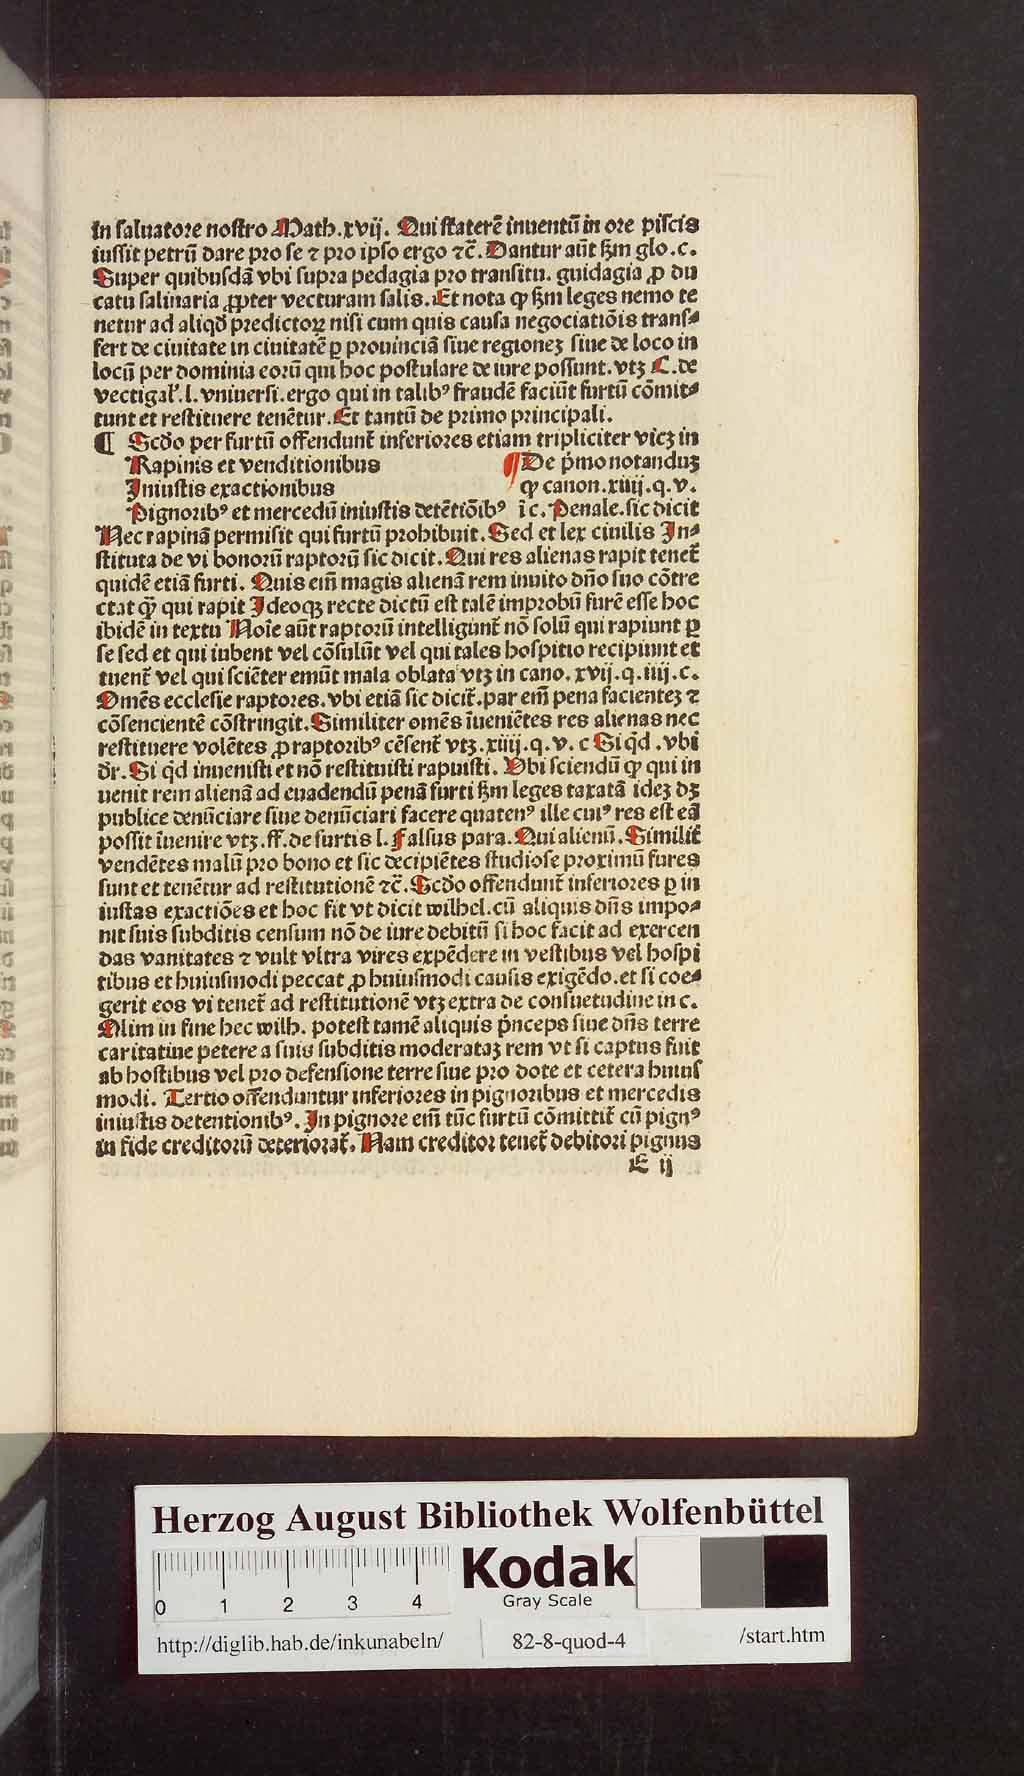 in saluatore nostro Math.xvij. Qui staterē inuentū in ore piscis
iussit petrū dare pro se ⁊ pro ipso ergo ⁊c̄. Dantur aūt ẜm glo.c.
Super quibusdā vbi supra pedagia pro transitu. guidagia ꝓ du
catu salinaria ꝓpter vecturam salis. Et nota ꝙ ẜm leges nemo te
netur ad aliqd̄ predictoꝝ nisi cum quis causa negociatiōis trans⸗
fert de ciuitate in ciuitatē ꝑ prouinciā siue regioneꝫ siue de loco in
locū per dominia eorū qui hoc postulare de iure possunt. vtꝫ C. de
vectigal̓. l. vniuersi. ergo qui in talibꝰ fraudē faciūt furtū cōmit⸗
tunt et restituere tenētur. Et tantū de primo principali.
¶ Scd̄o per furtū offendunt̄ inferiores etiam tripliciter vicꝫ in
Rapinis et venditionibus ¶ De p̄mo notanduꝫ
Iniustis exactionibus ꝙ canon.xiiij.q.v.
Pignoribꝰ et mercedū iniustis detētiōibꝰ ī c. Penale.sic dicit
Nec rapinā permisit qui furtū prohibuit. Sed et lex ciuilis In⸗
stituta de vi bonorū raptorū sic dicit. Qui res alienas rapit tenet̄
quidē etiā furti. Quis em̄ magis alienā rem inuito dn̄o suo cōtre
ctat ꝙ̄ qui rapit Ideoqꝫ recte dictū est talē improbū furē esse hoc
ibidē in textu Noīe aūt raptorū intelligunt̄ nō solū qui rapiunt ꝑ
se sed et qui iubent vel cōsulūt vel qui tales hospitio recipiunt et
tuent̄ vel qui sciēter emūt mala oblata vtꝫ in cano. xvij.q.iiij.c.
Omēs ecclesie raptores. vbi etiā sic dicit̄. par em̄ pena facienteꝫ ⁊
cōsencientē cōstringit. Similiter omēs īueniētes res alienas nec
restituere volētes ꝓ raptoribꝰ cēsent̄ vtꝫ.xiiij.q.v. c Si qd̄ . vbi
dr̄. Si qd̄ inuenisti et nō restituisti rapuisti. Vbi sciendū ꝙ qui in
uenit rem alienā ad euadendū penā furti ẜm leges taxatā ideꝫ dꝫ
publice denūciare siue denūciari facere quatenꝰ ille cuiꝰ res est eā
possit īuenire vtꝫ. ff. de furtis l. Falsus para. Qui alienū. Similit̄
vendētes malū pro bono et sic decipiētes studiose proximū fures
sunt et tenētur ad restitutionē ⁊c̄. Scd̄o offendunt̄ inferiores ꝑ in
iustas exactiōes et hoc fit vt dicit wilhel. cū aliquis dn̄s impo⸗
nit suis subditis censum nō de iure debitū si hoc facit ad exercen
das vanitates ⁊ vult vltra vires expēdere in vestibus vel hospi
tibus et huiusmodi peccat ꝓ huiusmodi causis exigēdo. et si coe⸗
gerit eos vi tenet̄ ad restitutionē vtꝫ extra de consuetudine in c.
Olim in fine hec wilh. potest tamē aliquis p̄nceps siue dn̄s terre
caritatiue petere a suis subditis moderataꝫ rem vt si captus fuit
ab hostibus vel pro defensione terre siue pro dote et cetera huius
modi. Tertio offenduntur inferiores in pignoribus et mercedis
iniustis detentionibꝰ. In pignore em̄ tūc furtū cōmittit̄ cū pignꝰ
in fide creditorū deteriorat̄. Nam creditor tenet̄ debitori pignus
E ij
Herzog August Bibliothek Wolfenbüttel
Kodak
Gray Scale
0 1 2 3 4
http://diglib.hab.de/inkunabeln/ 82-8-quod-4 /start.htm